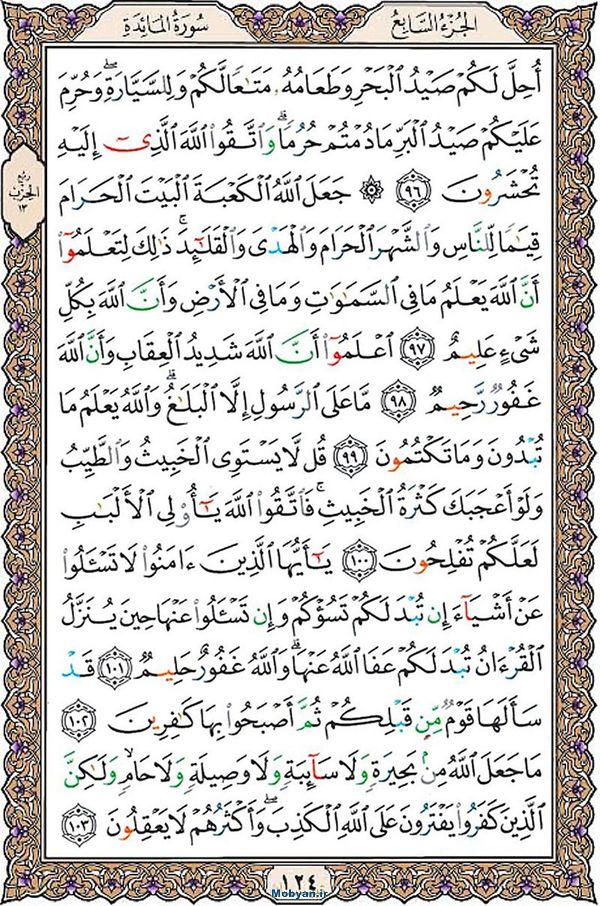 الجُزءُ السَّابِع
سُورَةُ المَائِدَة
أُحِلَّ لَكُمۡ صَيۡدُ ٱلۡبَحۡرِ وَطَعَامُهُۥ مَتَٰعٗا لَّكُمۡ وَلِلسَّيَّارَةِۖ وَحُرِّمَ
عَلَيۡكُمۡ صَيۡدُ ٱلۡبَرِّ مَا دُمۡتُمۡ حُرُمٗاۗ وَٱتَّقُواْ ٱللَّهَ ٱلَّذِيٓ إِلَيۡهِ
تُحۡشَرُونَ ٩٦ ۞ جَعَلَ ٱللَّهُ ٱلۡكَعۡبَةَ ٱلۡبَيۡتَ ٱلۡحَرَامَ
قِيَٰمٗا لِّلنَّاسِ وَٱلشَّهۡرَ ٱلۡحَرَامَ وَٱلۡهَدۡيَ وَٱلۡقَلَٰٓئِدَۚ ذَٰلِكَ لِتَعۡلَمُوٓاْ
أَنَّ ٱللَّهَ يَعۡلَمُ مَا فِي ٱلسَّمَٰوَٰتِ وَمَا فِي ٱلۡأَرۡضِ وَأَنَّ ٱللَّهَ بِكُلِّ
شَيۡءٍ عَلِيمٌ ٩٧ ٱعۡلَمُوٓاْ أَنَّ ٱللَّهَ شَدِيدُ ٱلۡعِقَابِ وَأَنَّ ٱللَّهَ
غَفُورٞ رَّحِيمٞ ٩٨ مَّا عَلَى ٱلرَّسُولِ إِلَّا ٱلۡبَلَٰغُۗ وَٱللَّهُ يَعۡلَمُ مَا
تُبۡدُونَ وَمَا تَكۡتُمُونَ ٩٩ قُل لَّا يَسۡتَوِي ٱلۡخَبِيثُ وَٱلطَّيِّبُ
وَلَوۡ أَعۡجَبَكَ كَثۡرَةُ ٱلۡخَبِيثِۚ فَٱتَّقُواْ ٱللَّهَ يَٰٓأُوْلِي ٱلۡأَلۡبَٰبِ
لَعَلَّكُمۡ تُفۡلِحُونَ ١٠٠ يَٰٓأَيُّهَا ٱلَّذِينَ ءَامَنُواْ لَا تَسۡـَٔلُواْ
عَنۡ أَشۡيَآءَ إِن تُبۡدَ لَكُمۡ تَسُؤۡكُمۡ وَإِن تَسۡـَٔلُواْ عَنۡهَا حِينَ يُنَزَّلُ
ٱلۡقُرۡءَانُ تُبۡدَ لَكُمۡ عَفَا ٱللَّهُ عَنۡهَاۗ وَٱللَّهُ غَفُورٌ حَلِيمٞ ١٠١ قَدۡ
سَأَلَهَا قَوۡمٞ مِّن قَبۡلِكُمۡ ثُمَّ أَصۡبَحُواْ بِهَا كَٰفِرِينَ ١٠٢
مَا جَعَلَ ٱللَّهُ مِنۢ بَحِيرَةٖ وَلَا سَآئِبَةٖ وَلَا وَصِيلَةٖ وَلَا حَامٖ وَلَٰكِنَّ
ٱلَّذِينَ كَفَرُواْ يَفۡتَرُونَ عَلَى ٱللَّهِ ٱلۡكَذِبَۖ وَأَكۡثَرُهُمۡ لَا يَعۡقِلُونَ ١٠٣
ربع
الحزب
١٣
١٢٤
Mobyan.ir